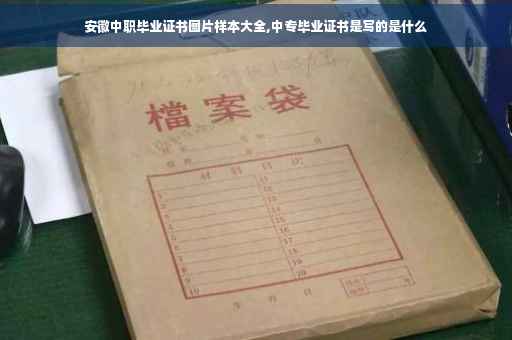 安徽中职毕业证书图片样本大全,中专毕业证书是写的是什么
檔案袋
材料目次
1 11
2 12
3 13
4 14
5 15
6 16
7 17
8 18
9 19
10 20
年 月 日